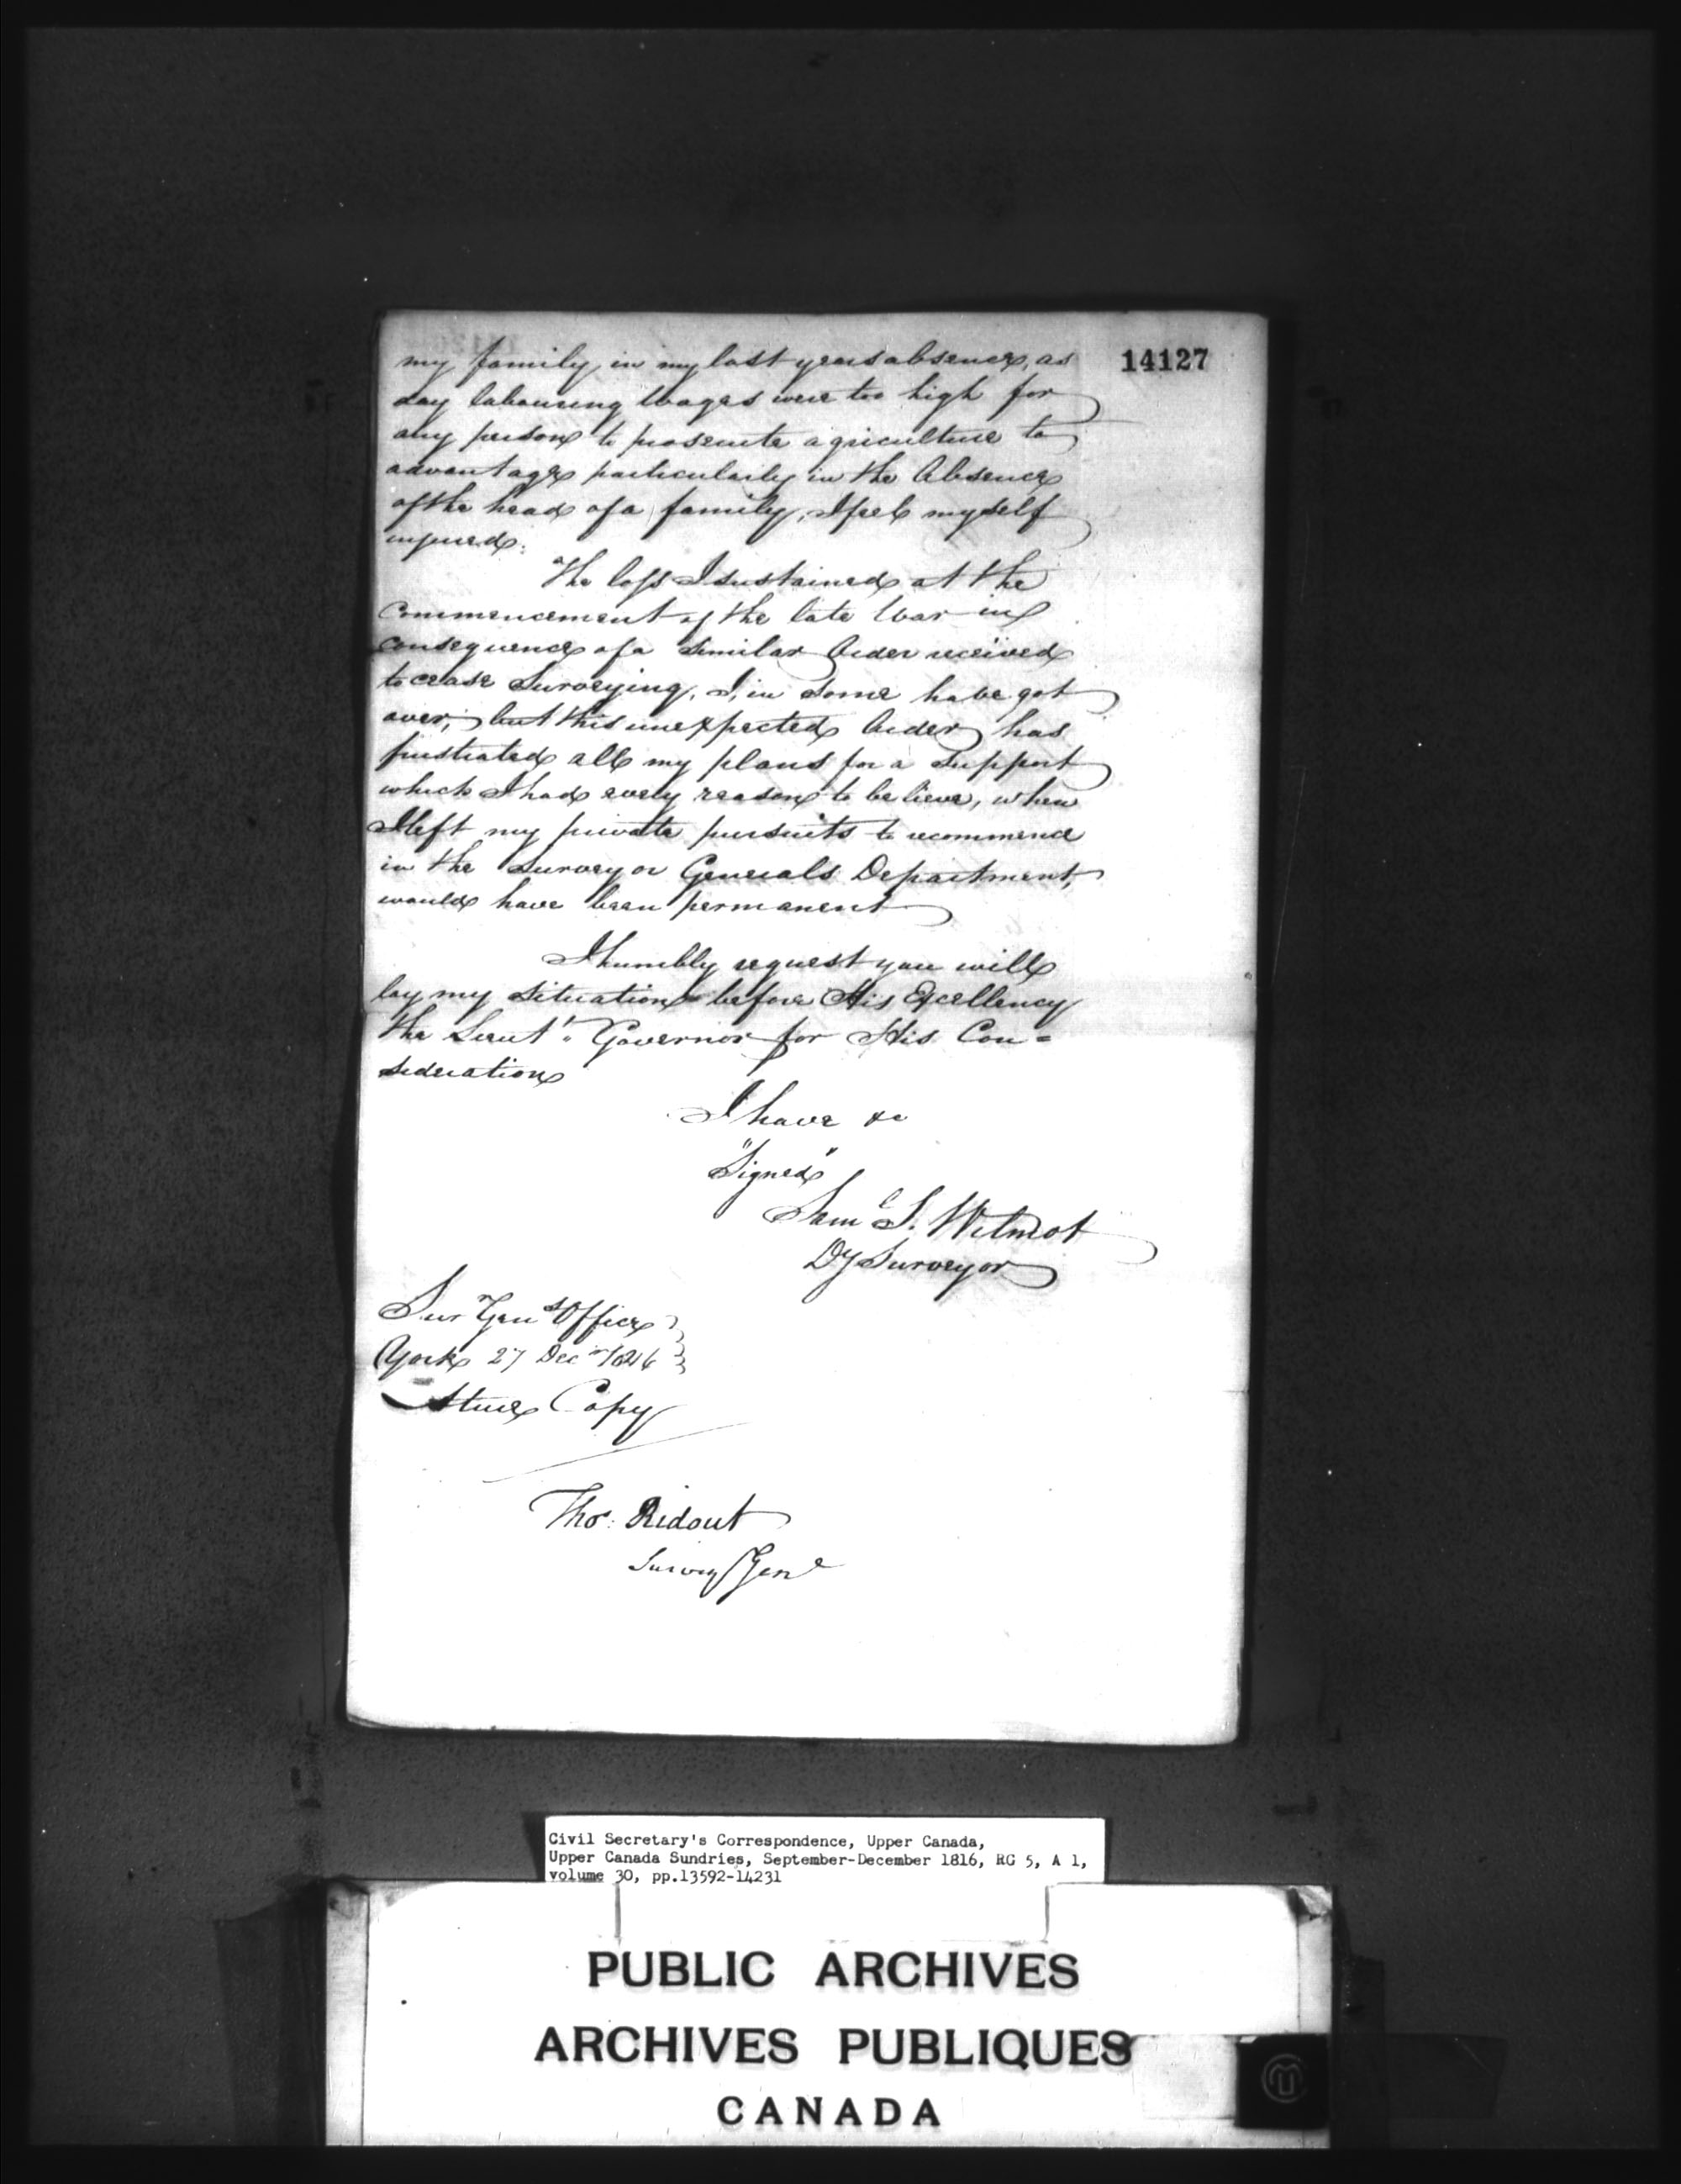 14127
my family in my last years absence, as
day labouring wages were too high for
any person to prosecute agriculture to
advantage particularly in the Absence
of the head of a family, I feel myself
injured.
The loss I sustained at the
Commencement of the late War in
consequence of a similar Order received
to cease Surveying, I, in some have got
over, but this unexpected Order has
frustrated all my plans for a support
which I had every reason to believe, when
I left my private pursuits to recommence
in the Surveyor Generals Department,
would have been permanent
I humbly request you will
lay my situation before His Excellency
the Lieut. Governor for His Con=
sideration
I have &c
"Signed"
Saml S. Wilmot
Dy Surveyor
Sur Genls Office
York 27 Decr 1816
A true Copy
Thos. Ridout
Survey Genl
Civil Secretary's Correspondence, Upper Canada,
Upper Canada Sundries, September-December 1816, RG 5, A 1,
volume 30, pp.13592-14231
PUBLIC ARCHIVES
ARCHIVES PUBLIQUES
CANADA